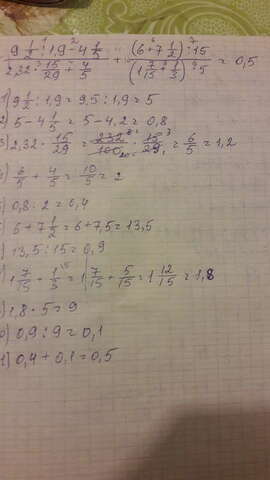 (9 1/2 : 1,9 - 4 1/5) / (2,32 · 15/29 + 4/5) + ((6+7 1/2) : 15) / ((1 7/15 + 1/3) · 5) = 0,5
1) 9 1/2 : 1,9 = 9,5 : 1,9 = 5
2) 5 - 4 1/5 = 5 - 4,2 = 0,8
3) 2,32 · 15/29 = 232/100 · 15/29 = 6/5 = 1,2
6/5 + 4/5 = 10/5 = 2
) 0,8 : 2 = 0,4
6 + 7 1/2 = 6 + 7,5 = 13,5
) 13,5 : 15 = 0,9
) 1 7/15 + 1/3 = 1 7/15 + 5/15 = 1 12/15 = 1,8
) 1,8 · 5 = 9
0) 0,9 : 9 = 0,1
1) 0,4 + 0,1 = 0,5